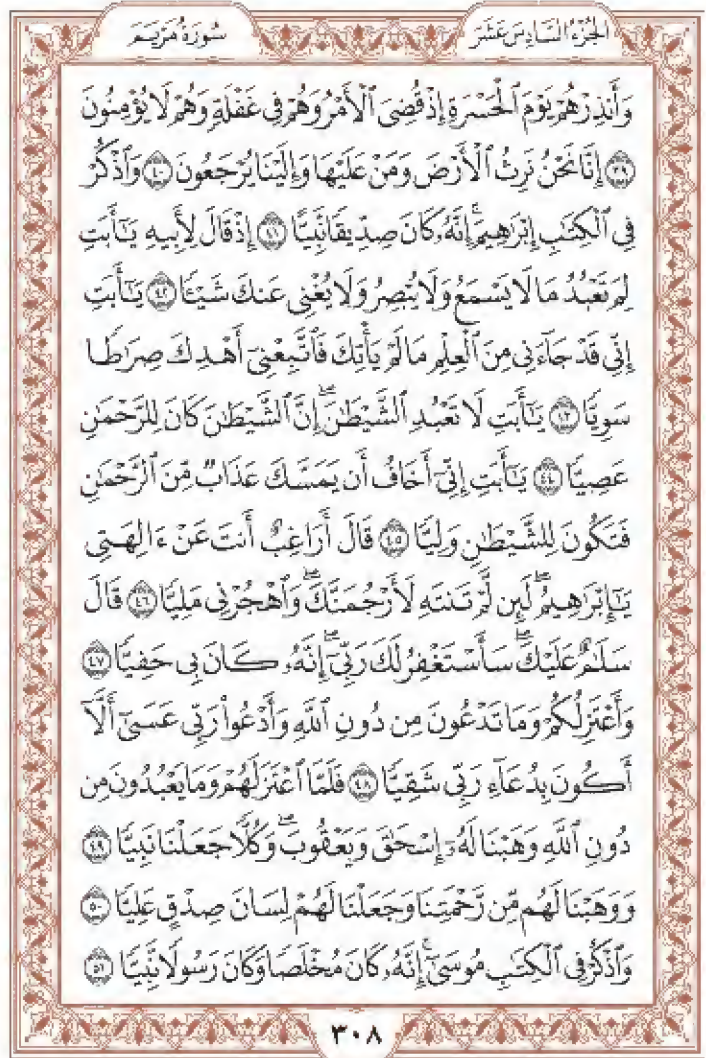 الجُزْءُ السَّادِسَ عَشَرَ
سُورَةُ مَرْيَم
وَأَنذِرْهُمْ يَوْمَ ٱلْحَسْرَةِ إِذْ قُضِىَ ٱلْأَمْرُ وَهُمْ فِى غَفْلَةٍ وَهُمْ لَا يُؤْمِنُونَ
٣٩ إِنَّا نَحْنُ نَرِثُ ٱلْأَرْضَ وَمَنْ عَلَيْهَا وَإِلَيْنَا يُرْجَعُونَ ٤٠ وَٱذْكُرْ
فِى ٱلْكِتَٰبِ إِبْرَٰهِيمَ ۚ إِنَّهُۥ كَانَ صِدِّيقًا نَّبِيًّا ٤١ إِذْ قَالَ لِأَبِيهِ يَٰٓأَبَتِ
لِمَ تَعْبُدُ مَا لَا يَسْمَعُ وَلَا يُبْصِرُ وَلَا يُغْنِى عَنكَ شَيْـًٔا ٤٢ يَٰٓأَبَتِ
إِنِّى قَدْ جَآءَنِى مِنَ ٱلْعِلْمِ مَا لَمْ يَأْتِكَ فَٱتَّبِعْنِىٓ أَهْدِكَ صِرَٰطًا
سَوِيًّا ٤٣ يَٰٓأَبَتِ لَا تَعْبُدِ ٱلشَّيْطَٰنَ ۖ إِنَّ ٱلشَّيْطَٰنَ كَانَ لِلرَّحْمَٰنِ
عَصِيًّا ٤٤ يَٰٓأَبَتِ إِنِّىٓ أَخَافُ أَن يَمَسَّكَ عَذَابٌ مِّنَ ٱلرَّحْمَٰنِ
فَتَكُونَ لِلشَّيْطَٰنِ وَلِيًّا ٤٥ قَالَ أَرَاغِبٌ أَنتَ عَنْ ءَالِهَتِى
يَٰٓإِبْرَٰهِيمُ ۖ لَئِن لَّمْ تَنتَهِ لَأَرْجُمَنَّكَ ۖ وَٱهْجُرْنِى مَلِيًّا ٤٦ قَالَ
سَلَٰمٌ عَلَيْكَ ۖ سَأَسْتَغْفِرُ لَكَ رَبِّىٓ ۖ إِنَّهُۥ كَانَ بِى حَفِيًّا ٤٧
وَأَعْتَزِلُكُمْ وَمَا تَدْعُونَ مِن دُونِ ٱللَّهِ وَأَدْعُوا۟ رَبِّى عَسَىٰٓ أَلَّآ
أَكُونَ بِدُعَآءِ رَبِّى شَقِيًّا ٤٨ فَلَمَّا ٱعْتَزَلَهُمْ وَمَا يَعْبُدُونَ مِن
دُونِ ٱللَّهِ وَهَبْنَا لَهُۥٓ إِسْحَٰقَ وَيَعْقُوبَ ۖ وَكُلًّا جَعَلْنَا نَبِيًّا ٤٩
وَوَهَبْنَا لَهُم مِّن رَّحْمَتِنَا وَجَعَلْنَا لَهُمْ لِسَانَ صِدْقٍ عَلِيًّا ٥٠
وَٱذْكُرْ فِى ٱلْكِتَٰبِ مُوسَىٰٓ ۚ إِنَّهُۥ كَانَ مُخْلَصًا وَكَانَ رَسُولًا نَّبِيًّا ٥١
٣٠٨